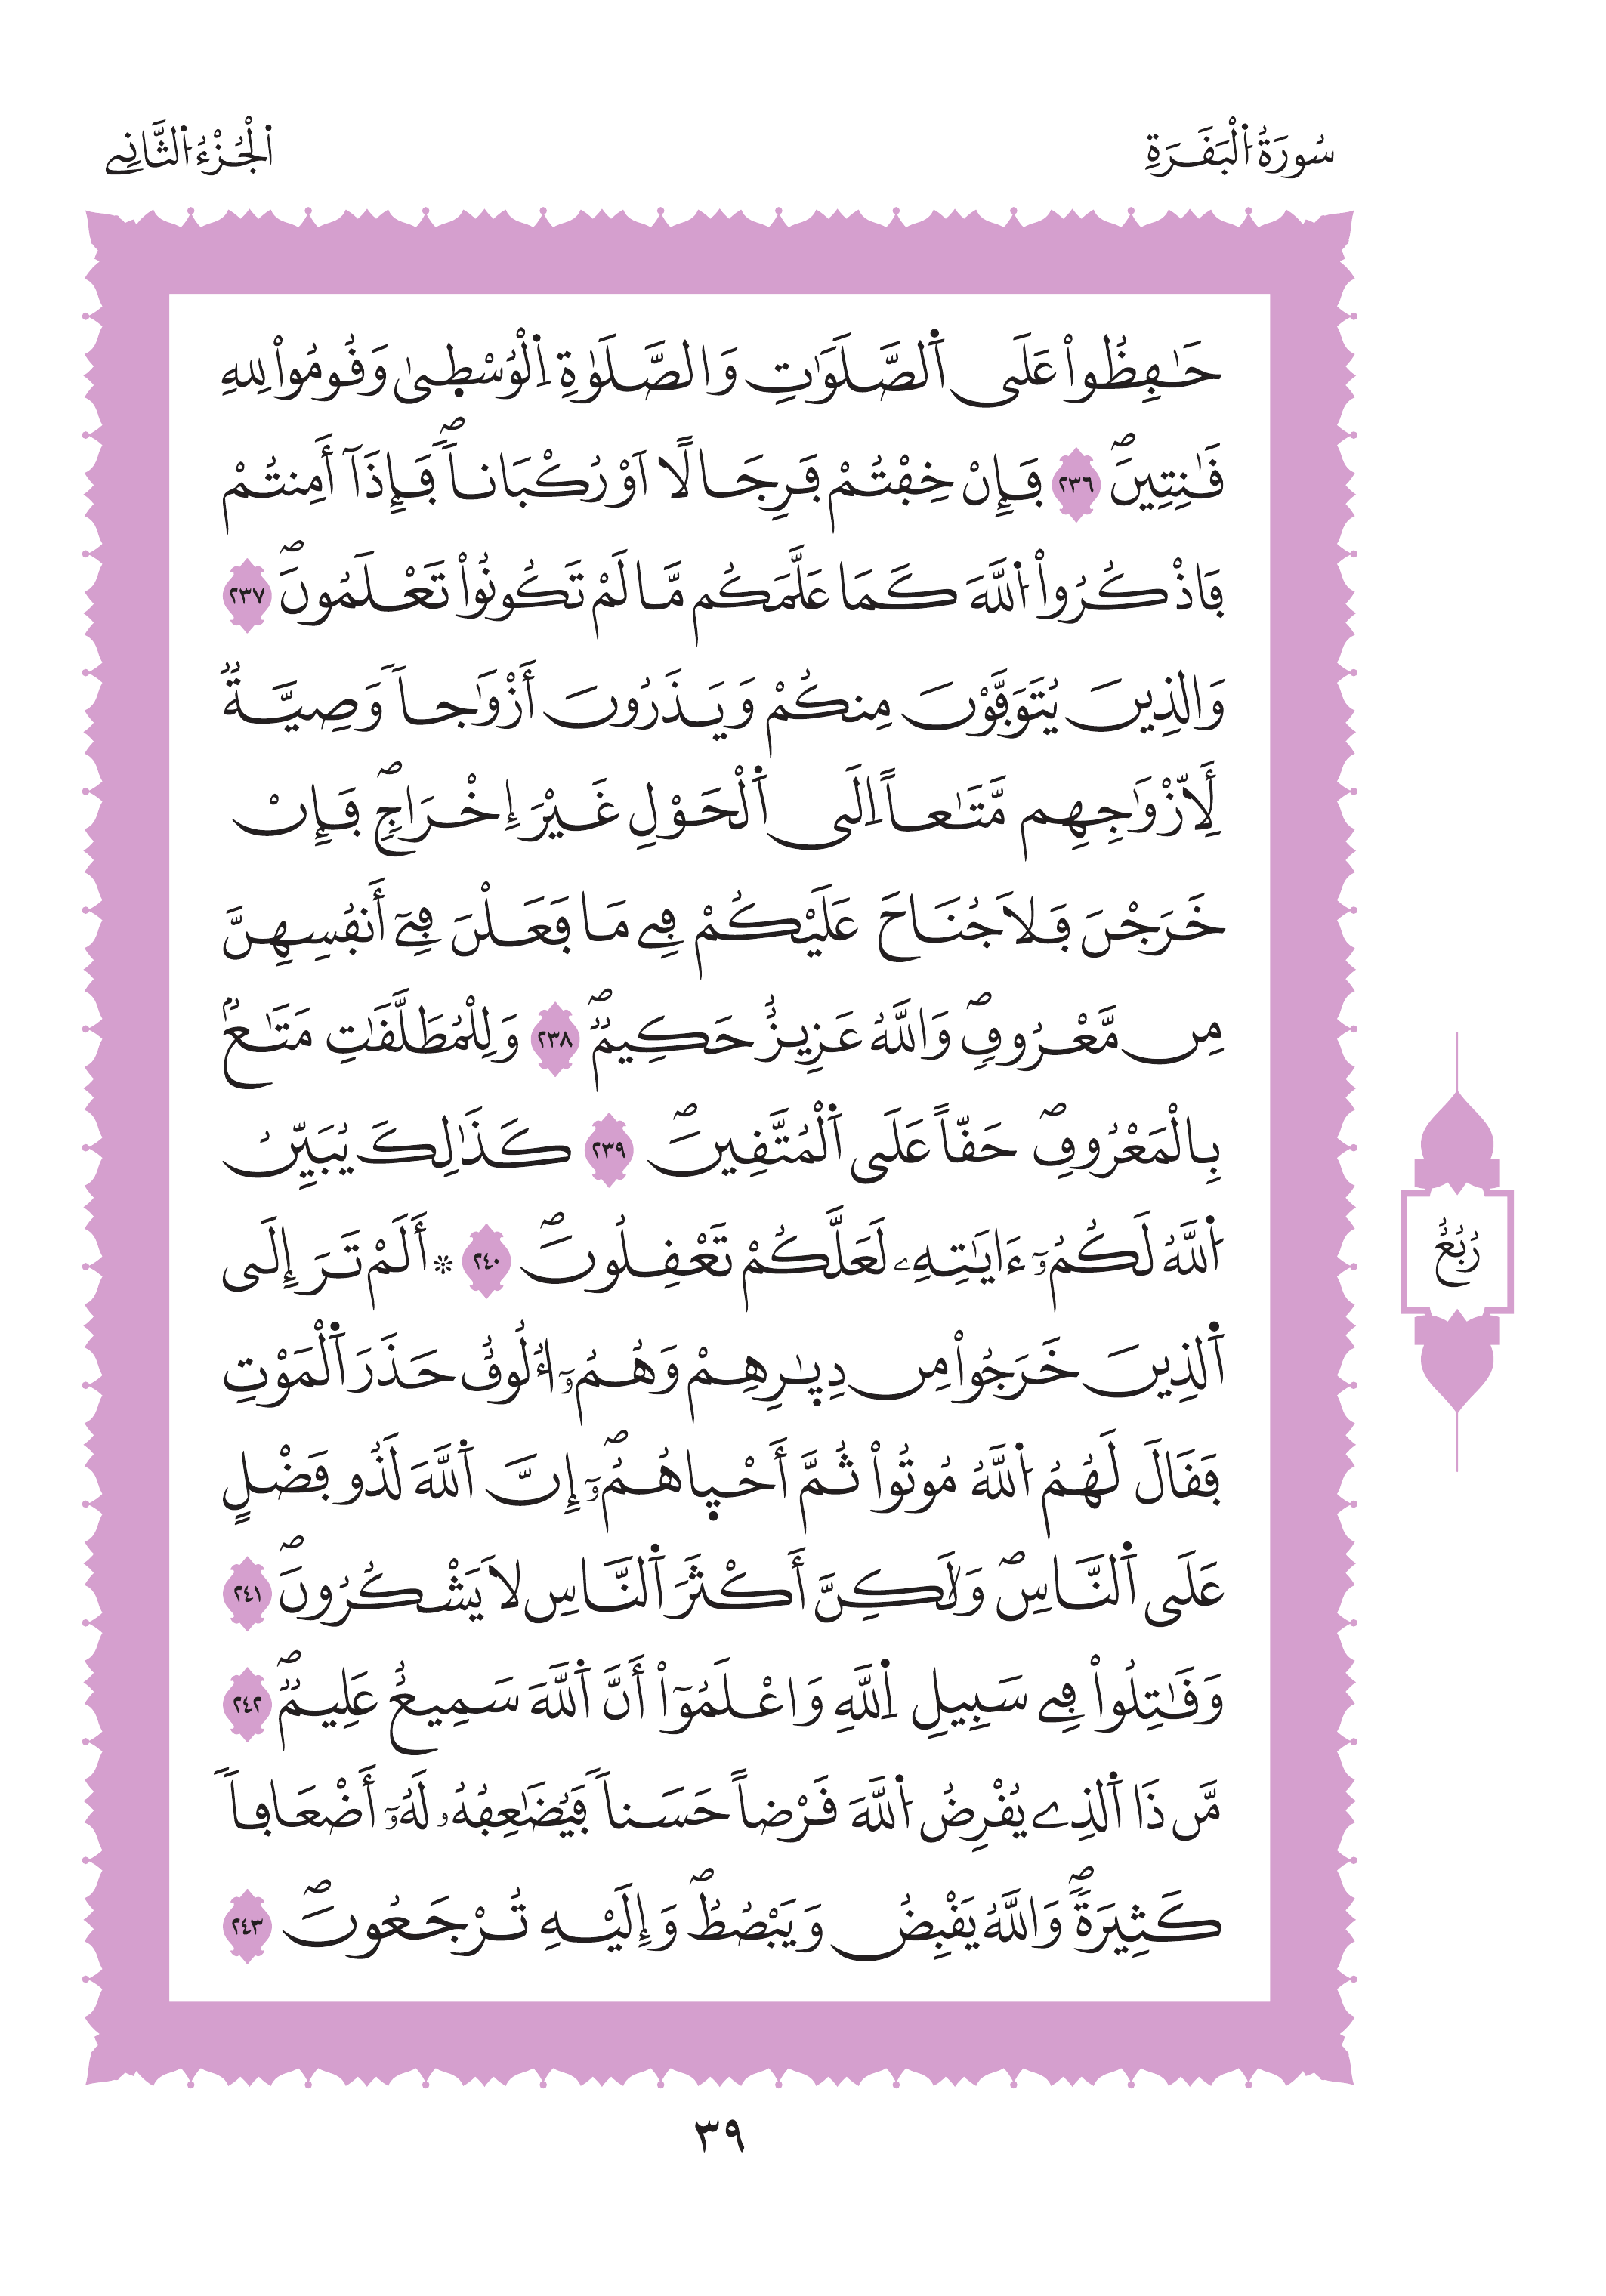 سُورَةُ اُ۬لْبَقَرَةِ
اَ۬لْجُزْءُ اُ۬لثَّانِے
حَٰفِظُواْ عَلَي اَ۬لصَّلَوَٰتِ وَالصَّلَوٰةِ اِ۬لْوُسْط۪ىٰ وَقُومُواْ لِلهِ
قَٰنِتِينَۖ ٢٣٦ فَإِنْ خِفْتُمْ فَرِجَالًا اَوْ رُكْبَاناٗۖ فَإِذَآ أَمِنتُمْ
فَاذْكُرُواْ اُ۬للَّهَ كَمَا عَلَّمَكُم مَّا لَمْ تَكُونُواْ تَعْلَمُونَۖ ٢٣٧
وَالذِينَ يُتَوَفَّوْنَ مِنكُمْ وَيَذَرُونَ أَزْوَٰجاٗ وَصِيَّةٞ
لِّأَزْوَٰجِهِم مَّتَٰعاً اِلَي اَ۬لْحَوْلِ غَيْرَ إِخْرَاجٖۖ فَإِنْ
خَرَجْنَ فَلَا جُنَاحَ عَلَيْكُمْ فِے مَا فَعَلْنَ فِےٓ أَنفُسِهِنَّ
مِن مَّعْرُوفٖۖ وَاللَّهُ عَزِيزٌ حَكِيمٞۖ ٢٣٨ وَلِلْمُطَلَّقَٰتِ مَتَٰعُۢ
بِالْمَعْرُوفِۖ حَقّاً عَلَي اَ۬لْمُتَّقِينَۖ ٢٣٩ كَذَٰلِكَ يُبَيِّنُ
اُ۬للَّهُ لَكُمُۥٓ ءَايَٰتِهِۦ لَعَلَّكُمْ تَعْقِلُونَۖ ٢٤٠ ۞ أَلَمْ تَرَ إِلَي
اَ۬لذِينَ خَرَجُواْ مِن دِيٰ۪رِهِمْ وَهُمُۥٓ أُلُوفٌ حَذَرَ اَ۬لْمَوْتِ
فَقَالَ لَهُمُ اُ۬للَّهُ مُوتُواْ ثُمَّ أَحْي۪اهُمُۥٓۖ إِنَّ اَ۬للَّهَ لَذُو فَضْلٍ
عَلَي اَ۬لنَّاسِۖ وَلَٰكِنَّ أَكْثَرَ اَ۬لنَّاسِ لَا يَشْكُرُونَۖ ٢٤١
وَقَٰتِلُواْ فِے سَبِيلِ اِ۬للَّهِ وَاعْلَمُوٓاْ أَنَّ اَ۬للَّهَ سَمِيعٌ عَلِيمٞۖ ٢٤٢
مَّن ذَا اَ۬لذِے يُقْرِضُ اُ۬للَّهَ قَرْضاً حَسَناٗ فَيُضَٰعِفُهُۥ لَهُۥٓ أَضْعَافاٗ
كَثِيرَةٗۖ وَاللَّهُ يَقْبِضُ وَيَبْصُطُۖ وَإِلَيْهِ تُرْجَعُونَۖ ٢٤٣
رُبُعُ
٣٩